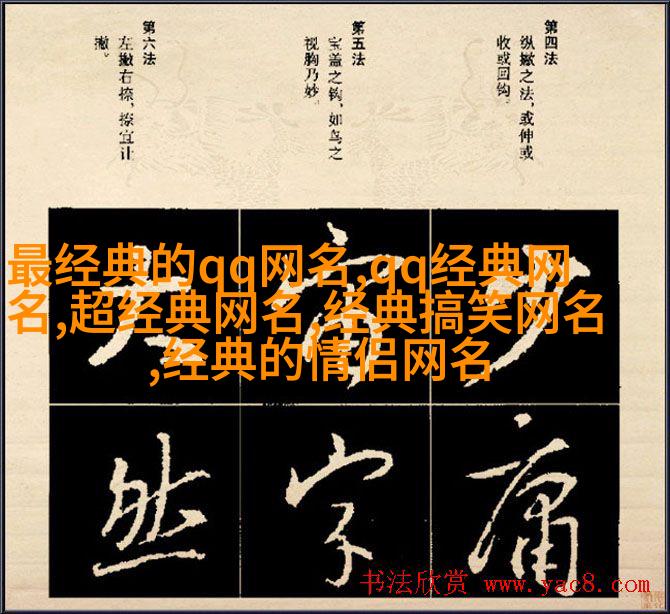 第四法
纵撇之法，或伸或
收或回钩。
第五法
宝盖之钩，如鸟之
视胸乃妙。
第六法
左撇右捺，捺宜让
撇。
最经典的qq网名,qq经典网
名,超经典网名,经典搞笑网名
,经典的情侣网名
少
庸 字 然
书法欣赏 www.yac8.com